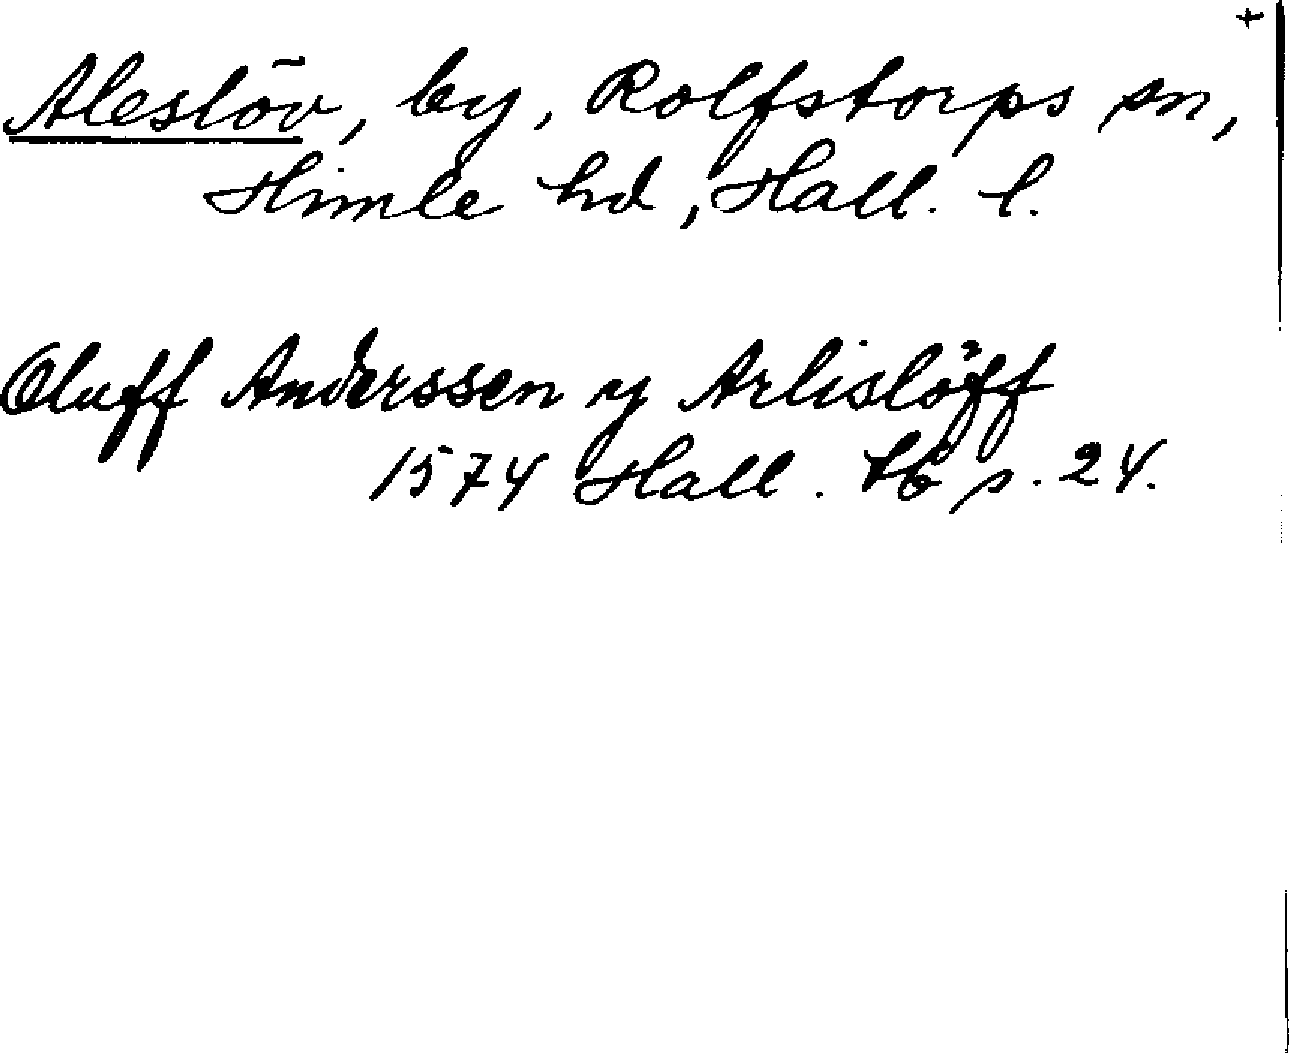 +
Aleslöv, by, Rolfstorps sn,
Himle hd, Hall. l.
Oluff Anderssen y Arlislöff
1574 Hall. tb s. 24.